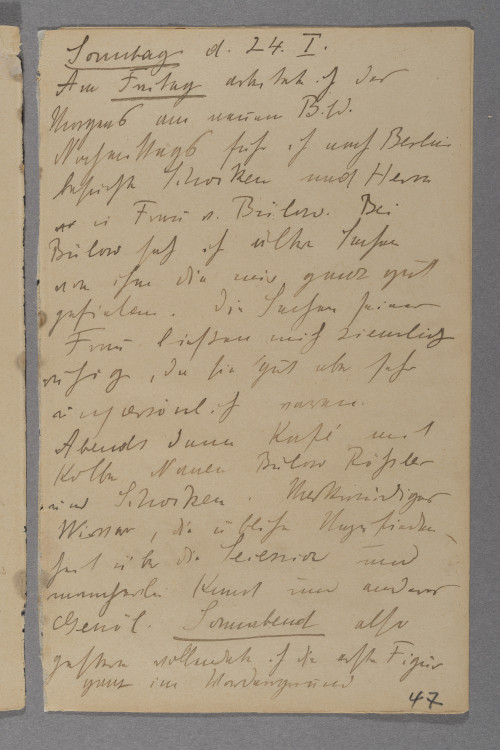 Sonntag d. 24. I.
Am Freitag arbeitete ich des
Morgens am neuen Bild.
Nachmittags fuhr ich nach Berlin
besuchte Schocken und Herrn
u Frau v. Bülow. Bei
Bülow sah ich ältre Sachen
von ihm die mir ganz gut
gefielen. Die Sachen seiner
Frau ließen mich ziemlich
ruhig, da sie gut aber sehr
unpersönlich waren.
Abends dann Kafé mit
Kolbe Nauen Bülow Rößler
und Schocken. Merkwürdiger
Wirrwar, die übliche Unzufrieden-
heit üb. die Secession und
mancherlei Kunst und andrer
Genöl. Sonnabend also
gestern vollendete ich die erste Figur
ganz im Vordergrund
47